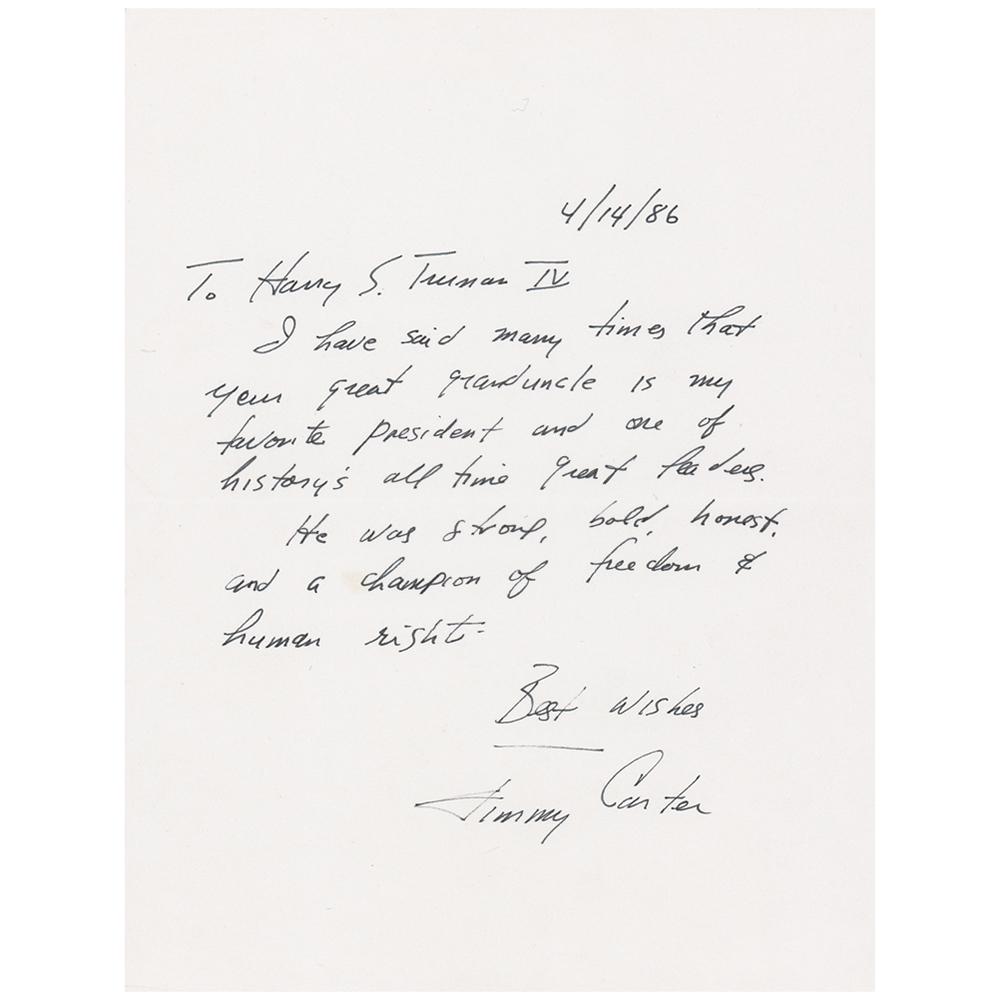 4/14/86
To Harry S. Truman IV
I have said many times that
your great granduncle is my
favorite president and one of
history's all time great leaders.
He was strong, bold, honest,
and a champion of freedom &
human rights.
Best wishes
Jimmy Carter